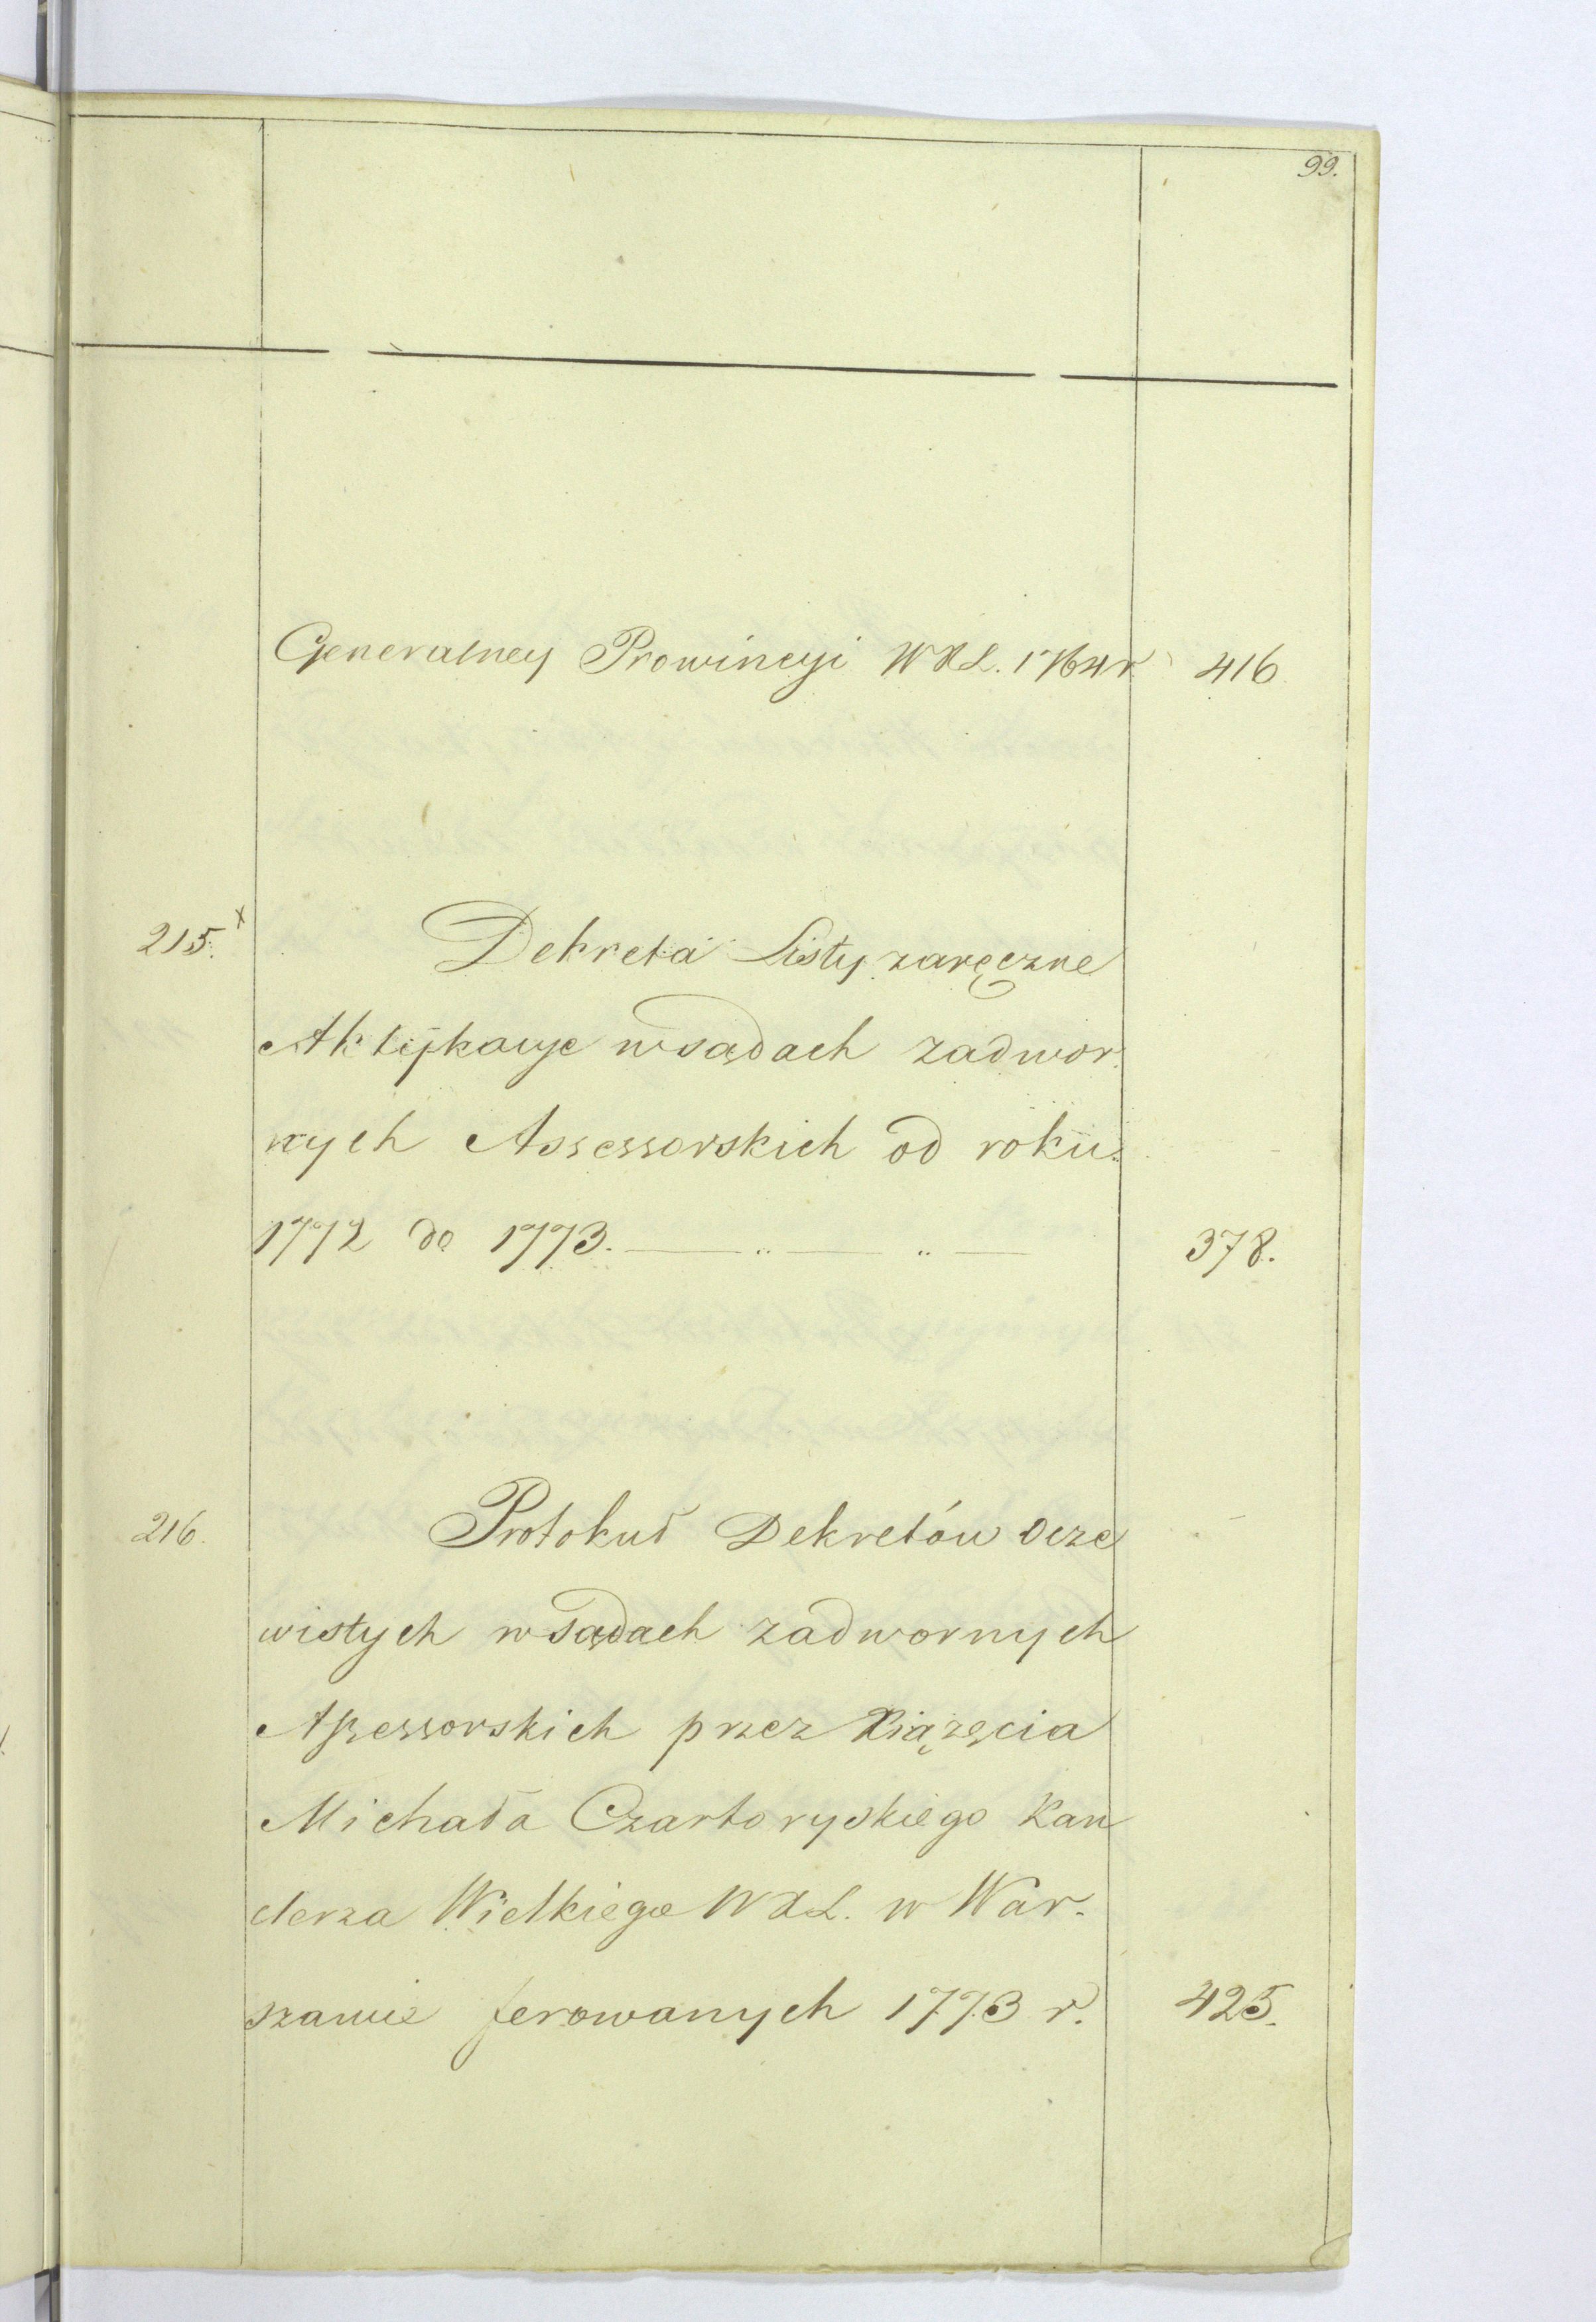 99.
Generalney Prowincyi WXL. 1764 r 416
215. x Dekreta Listy zaręczne
Aktykacye w sądach zadwor
nych Assessorskich od roku
1772 do 1773. — „ — „ — 378.
216. Protokuł Dekretów Ocze
wistych w sądach zadwornych
Assessorskich przez Xiążęcia
Michała Czartoryskiego Kan
clerza Wielkiego WXL. w War.
szawie ferowanych 1773 r. 425.